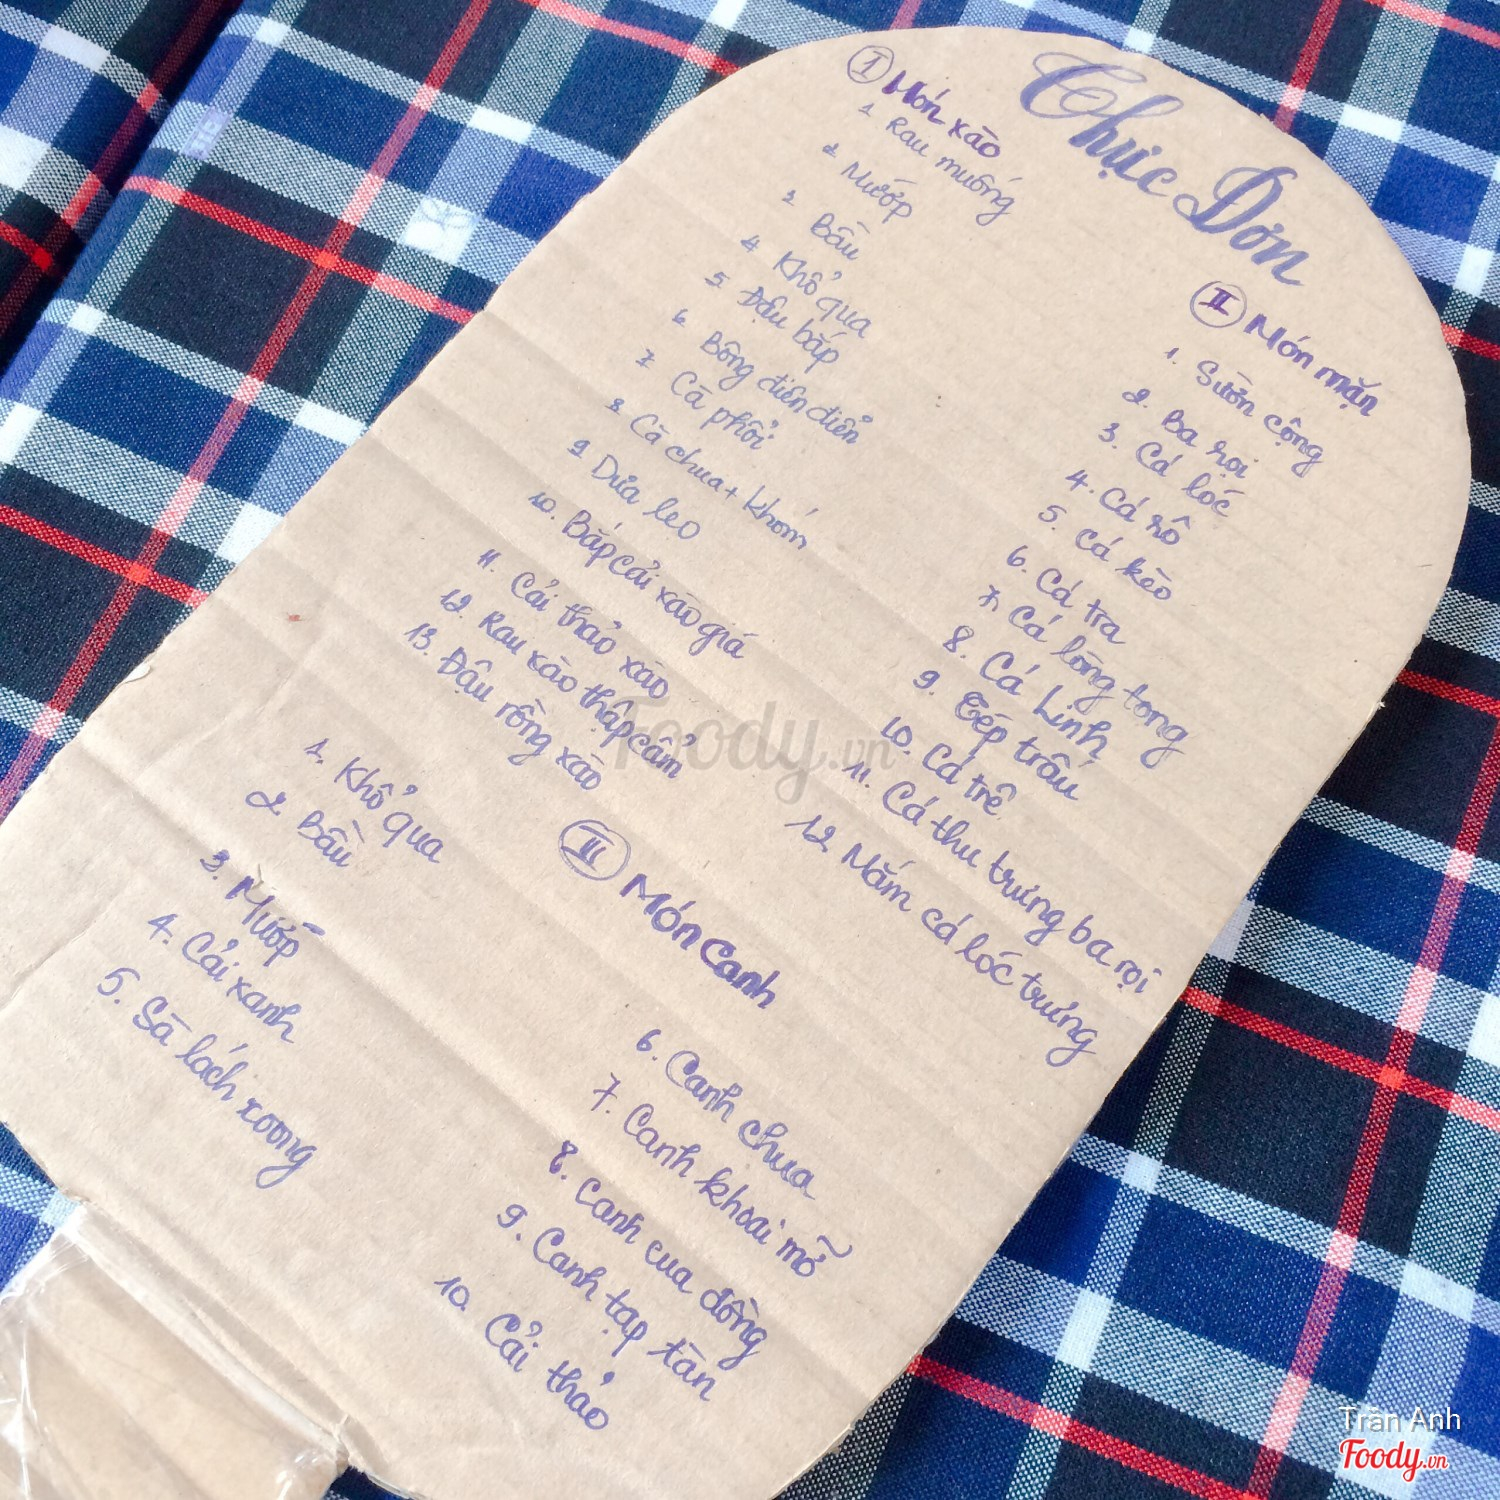 Thực Đơn
I Món xào
1 Rau muống
2 Mướp
3 Bầu
4 Khổ qua
5 Đậu bắp
6 Bông điên điển
7 Cà phổi
8 Cà chua + khóm
9 Dưa leo
10. Bắp cải xào giá
11. Cải thảo xào
12. Rau xào thập cẩm
13. Đậu rồng xào
II Món mặn
1. Sườn cộng
2. Ba rọi
3. Cá lóc
4. Cá rô
5. Cá kèo
6. Cá tra
7. Cá lòng tong
8. Cá Linh
9. Tép trấu
10. Cá trê
11. Cá thu trưng ba rọi
12 Mắm cá lóc trưng
III Món Canh
1. Khổ qua
2. Bầu
3. Mướp
4. Cải xanh
5. Sà lách xoong
6. Canh chua
7. Canh khoai mỡ
8. Canh cua đồng
9. Canh tạp tàn
10. Cải thảo
Foody.vn
Trần Anh
Foody.vn